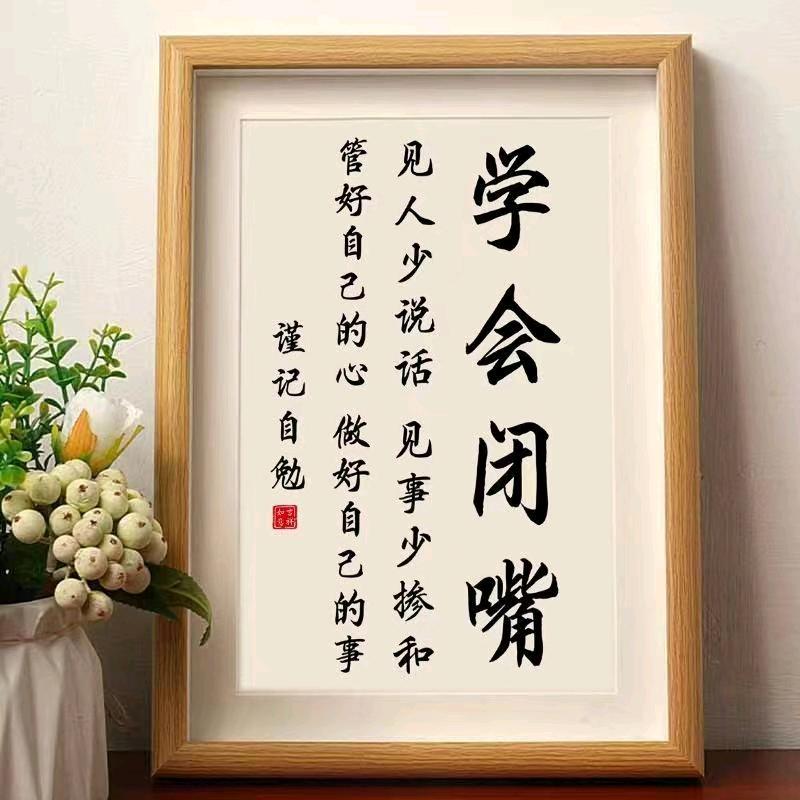 学会闭嘴
见人少说话 见事少掺和
管好自己的心 做好自己的事
谨记自勉
吉祥如意